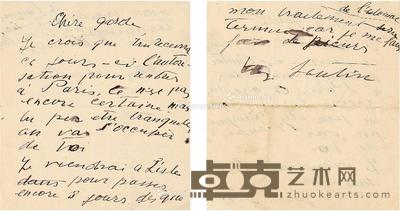 Chère garde
Je crois que tu recevra
ce jours-ci l'auto-
risation pour rentrer
à Paris, ce n'est pas
encore certaine mais
tu peu être tranquille
on va s'occuper
de toi
Je viendrai à l'Isle
dans pour passer
encore 8 jours dès que
mon traitement de l'estomac sera
terminé car je me fais
des
Soutine
艺术网
zhuokearts.com